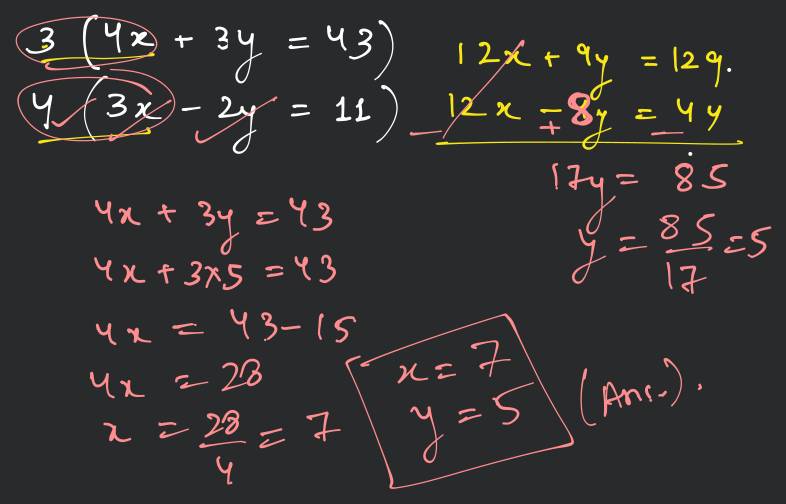 3 (4x + 3y = 43)
4 (3x - 2y = 11)
12x + 9y = 129.
12x - 8y = 44
- + -
17y = 85
y = 85/17 = 5
4x + 3y = 43
4x + 3x5 = 43
4x = 43 - 15
4x = 28
x = 28/4 = 7
x = 7
y = 5
(Ans.).